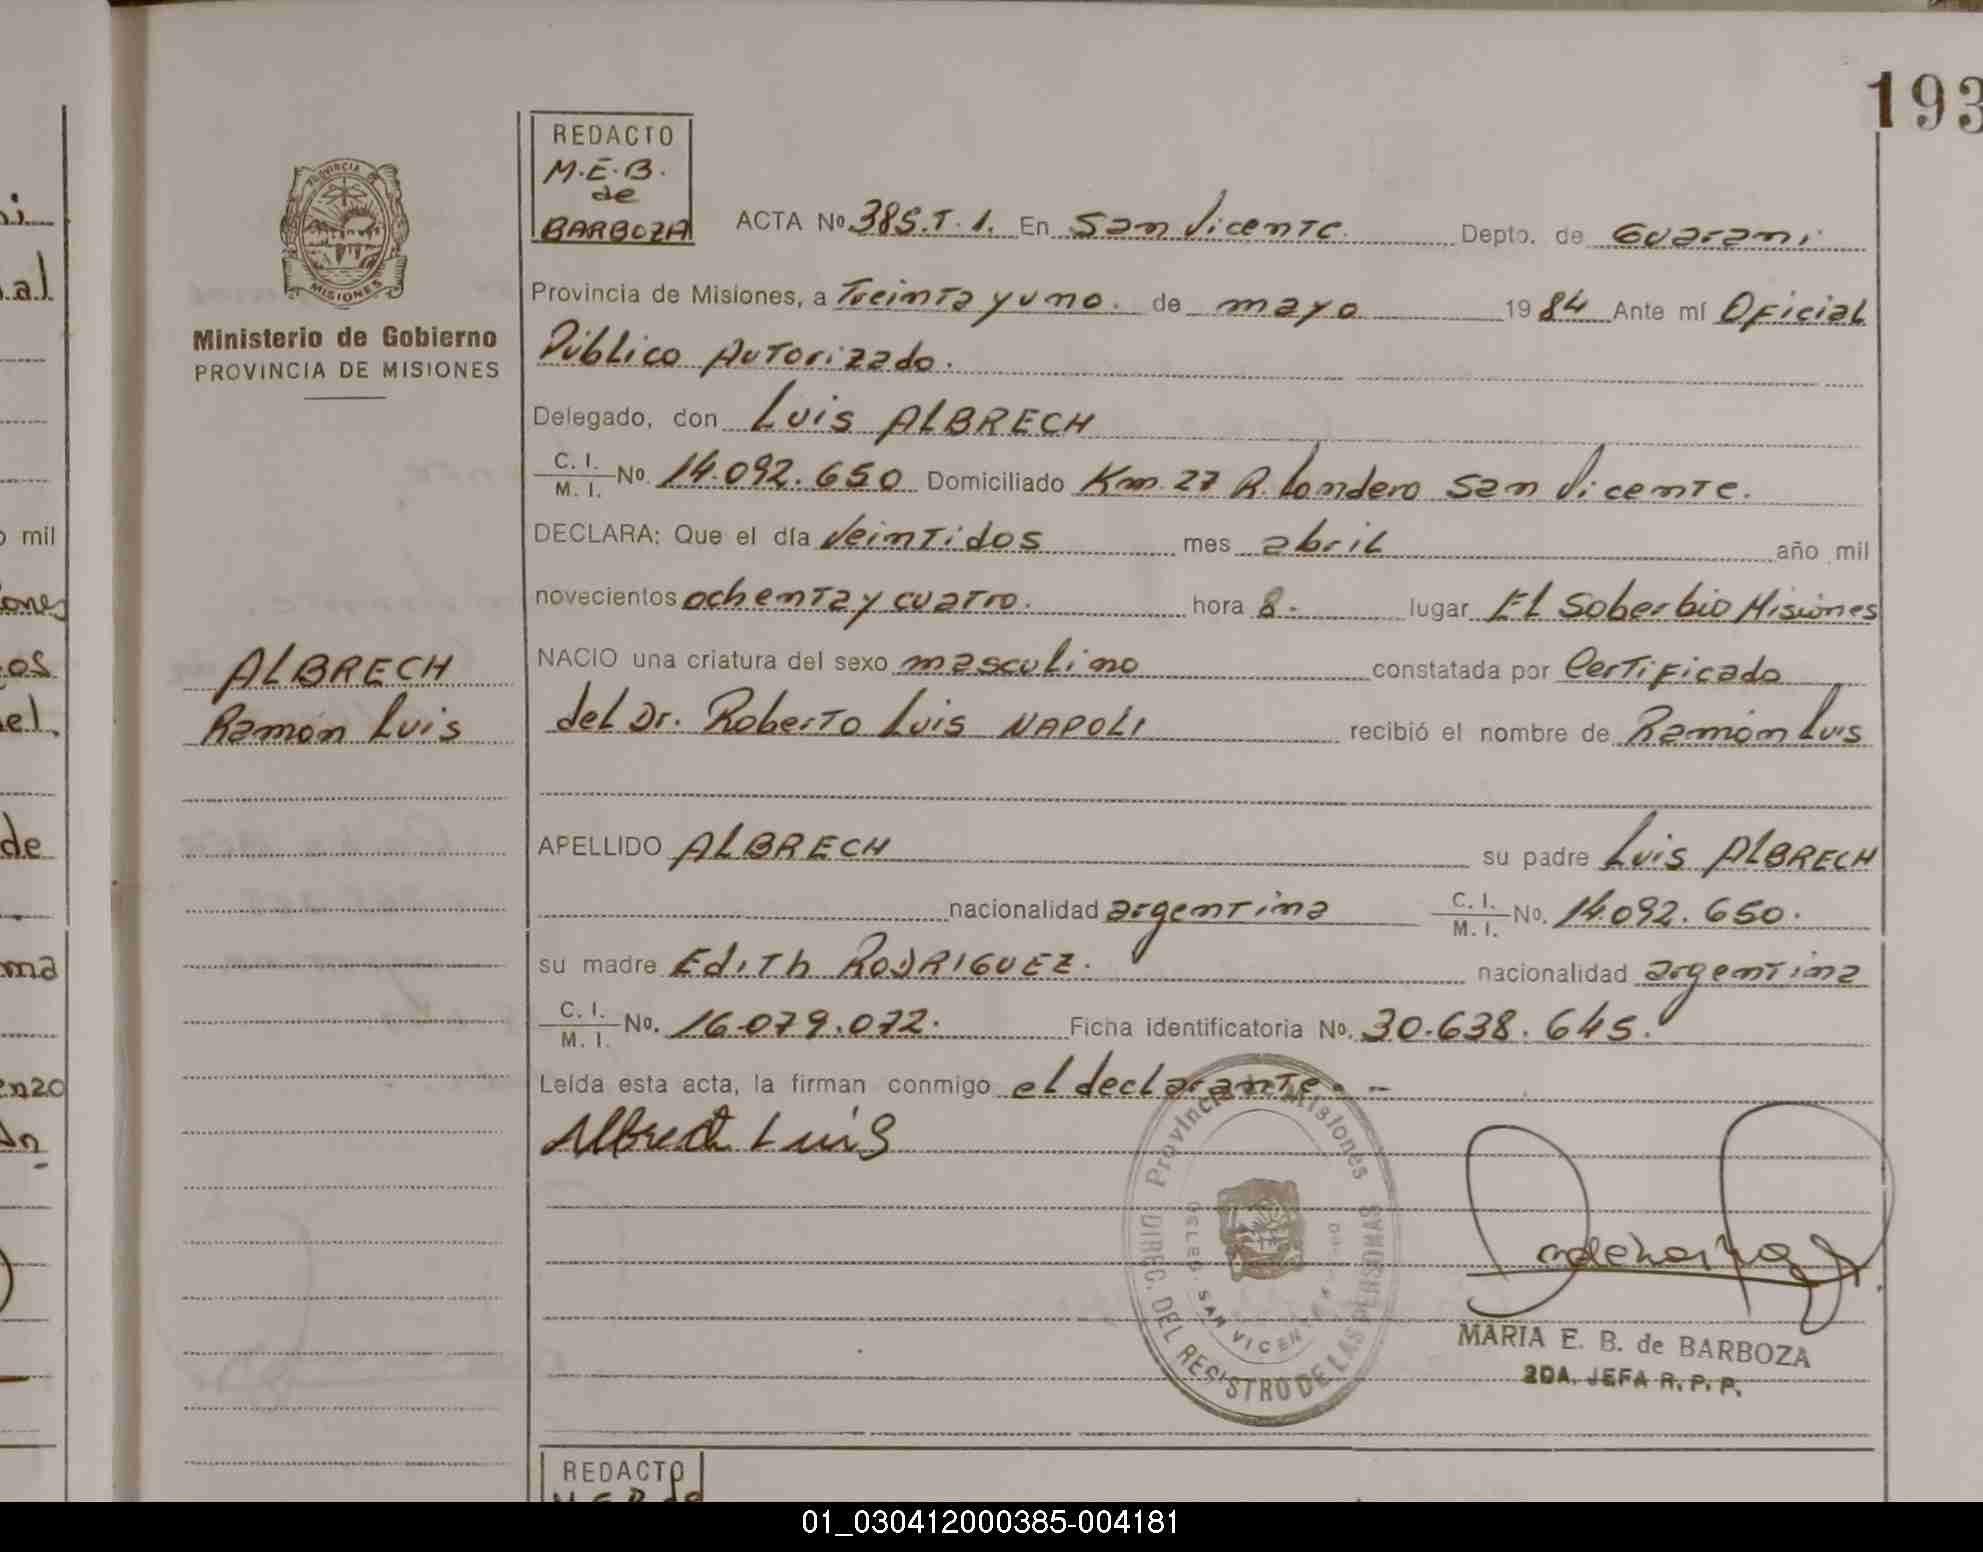 193
REDACTO
M.E.B.
de
BARBOZA
PROVINCIA DE
MISIONES
Ministerio de Gobierno
PROVINCIA DE MISIONES
ACTA No. 385.T.1. En San Vicente. Depto. de Guarani
Provincia de Misiones, a Treinta y uno. de mayo 1984 Ante mí Oficial
Público Autorizado.
Delegado, don Luis ALBRECH
C. I. / M. I. No. 14.092.650 Domiciliado Km. 27 R. Londero San Vicente.
DECLARA: Que el día Veintidos mes abril año mil
novecientos ochenta y cuatro. hora 8.- lugar El Soberbio Misiones
NACIO una criatura del sexo masculino constatada por Certificado
del Dr. Roberto Luis NAPOLI recibió el nombre de Ramón Luis
ALBRECH
Ramón Luis
APELLIDO ALBRECH su padre Luis ALBRECH
nacionalidad argentina C. I. / M. I. No. 14.092.650.
su madre Edith RODRIGUEZ. nacionalidad argentina
C. I. / M. I. No. 16.079.072. Ficha identificatoria No. 30.638.645.
Leída esta acta, la firman conmigo el declarante.-
Albrech Luis
Provincia de Misiones
DIREC. DEL REGISTRO DE LAS PERSONAS
SAN VICENTE
MARIA E. B. de BARBOZA
2DA. JEFA R. P. P.
REDACTO
M.E.B. de
mil
ones
os
el.
de
ma
enzo
01_030412000385-004181